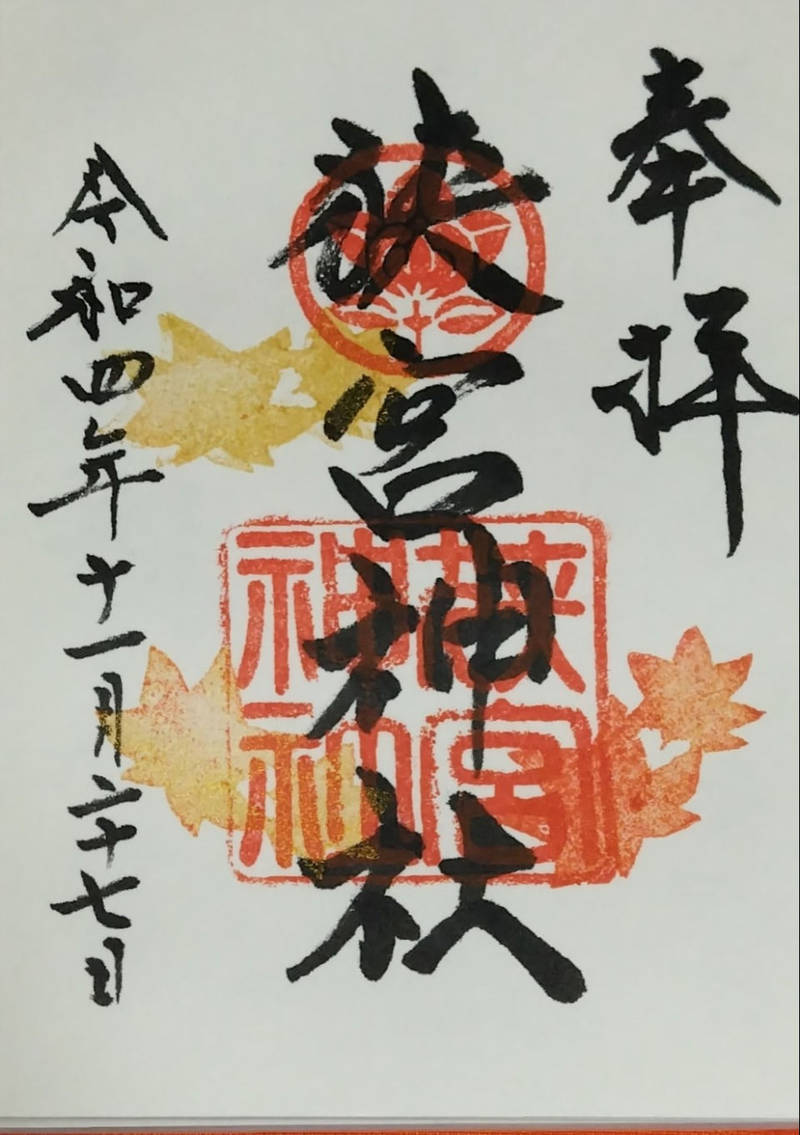 奉拝
狭宮神社
狭宮
神社
令和四年十一月二十七日